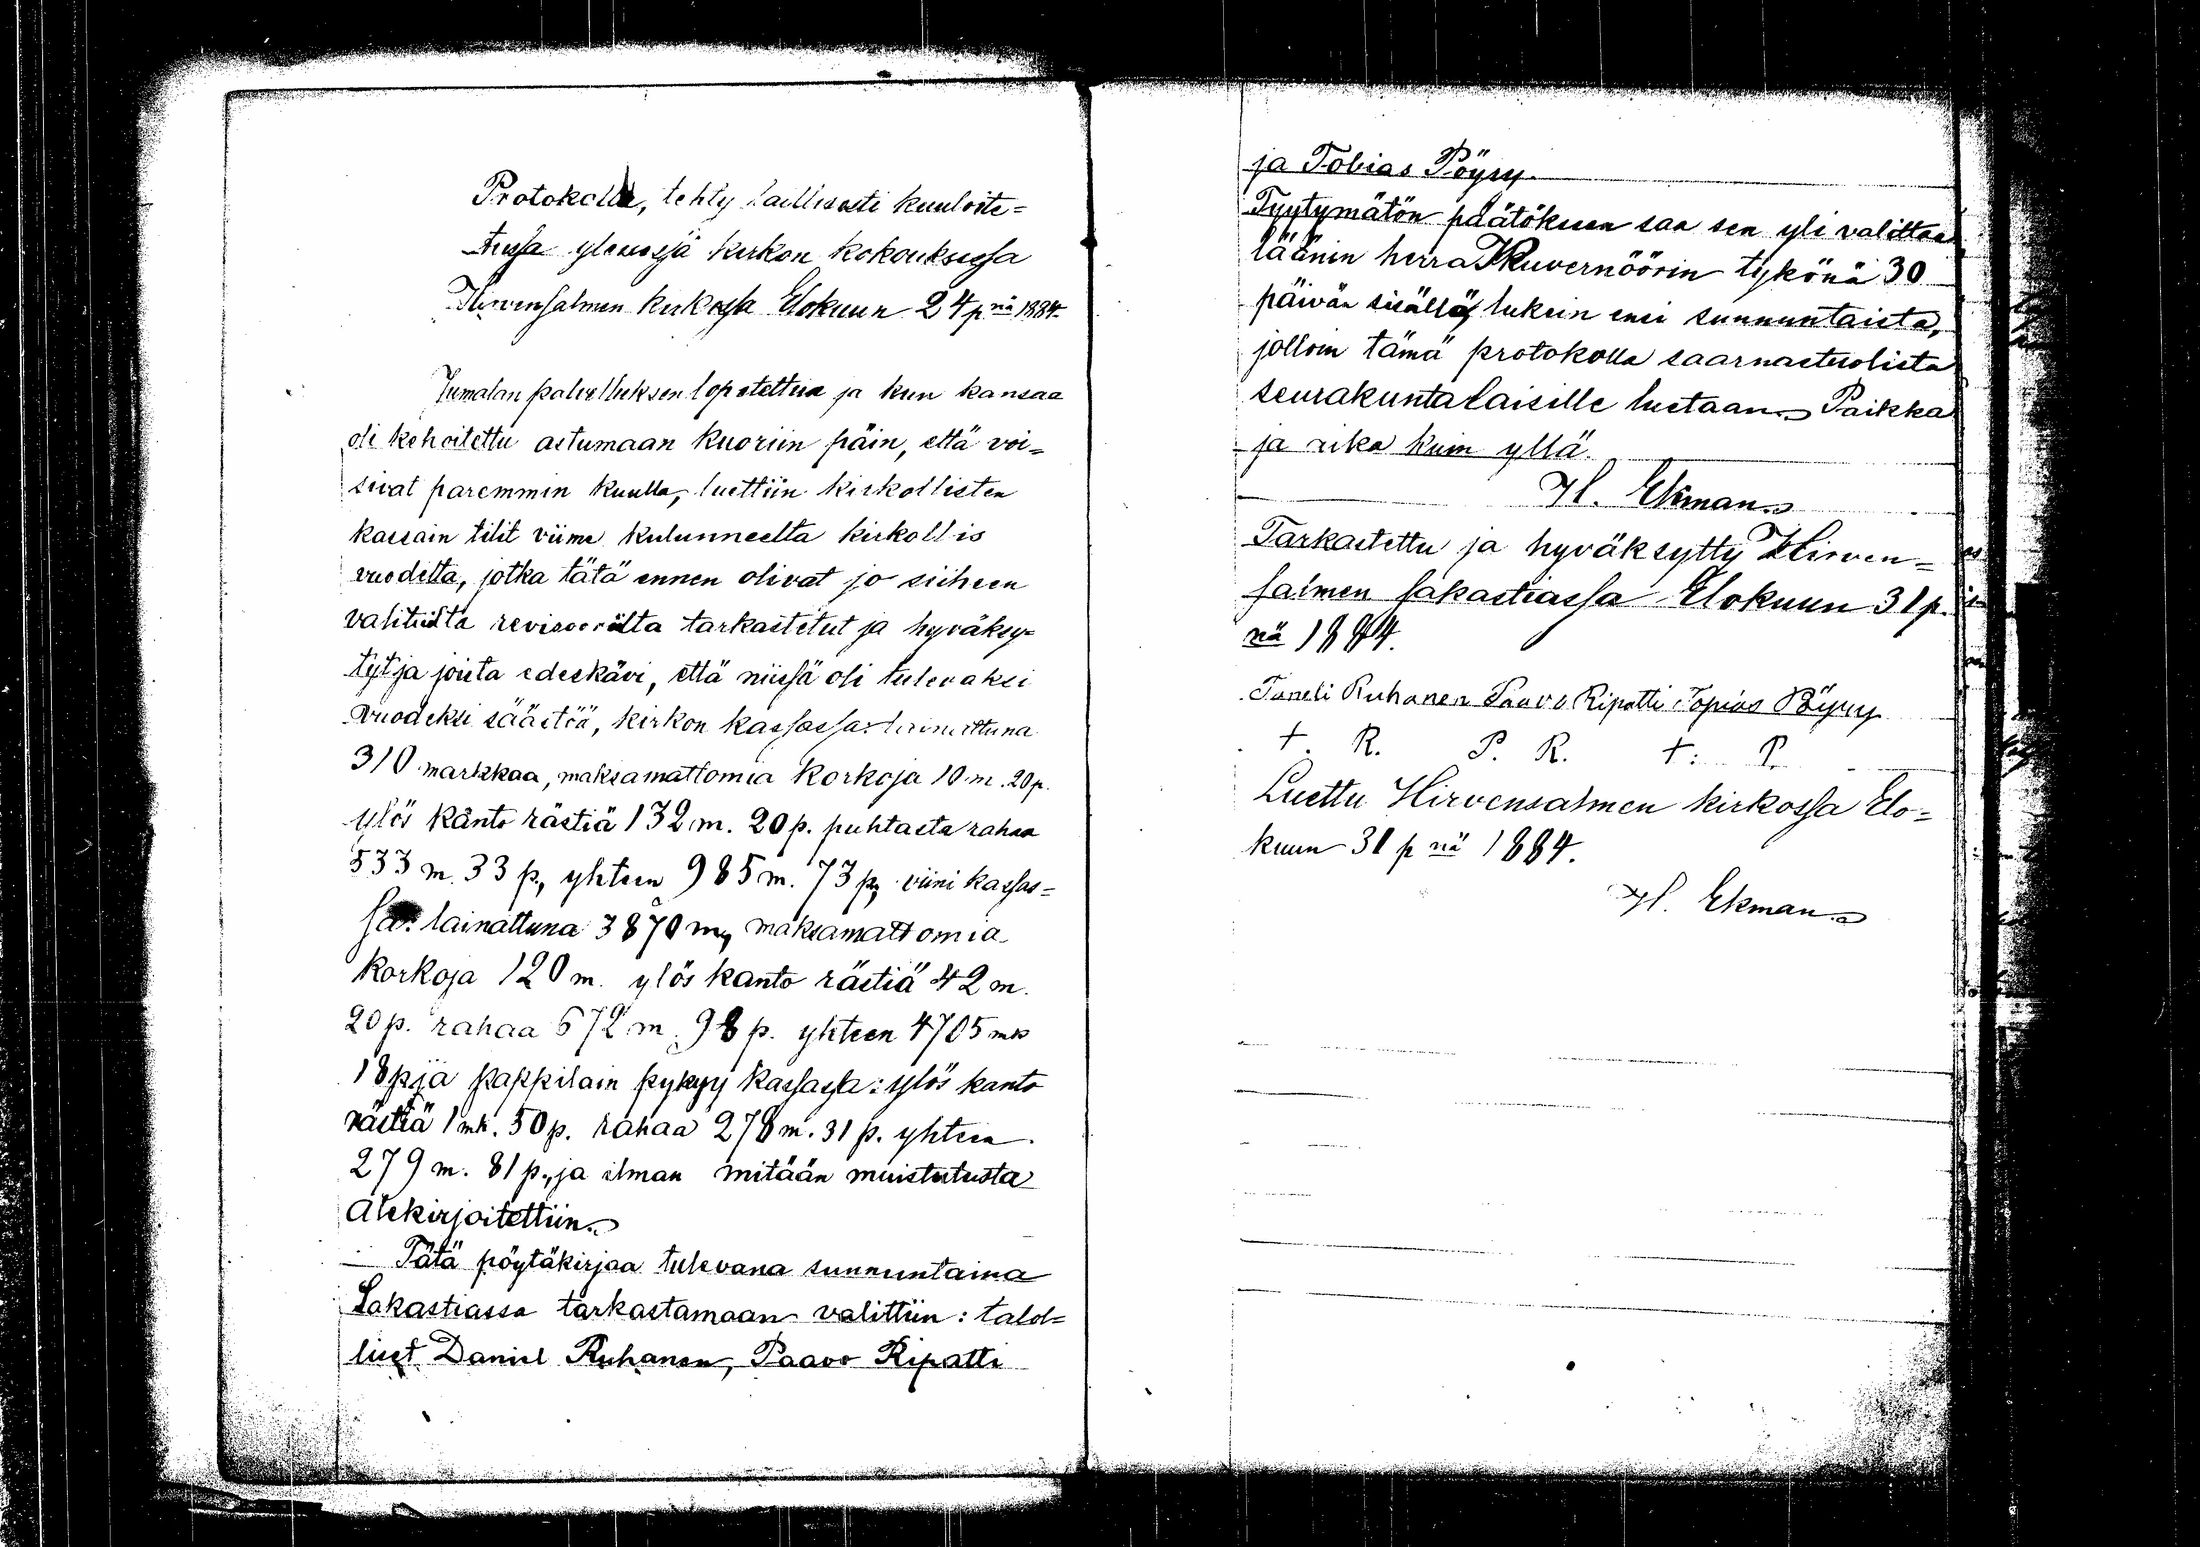 Protokolla, tehty laillisesti kuuloite=
tussa yleisessä kirkon kokouksessa
Hirvensalmen kirkossa Elokuun 24 p nä 1884.
Jumalan palvelluksen lopetettua ja kun kansaa
oli kehoitettu astumaan kuoriin päin, että voi=
sivat paremmin kuulla, luettiin kirkollisten
kassain tilit viime kulunneelta kirkollis
vuodelta, jotka tätä ennen olivat jo siiheen
valituilta revisoorilta tarkastetut ja hyväksy=
tyt ja joista edeskävi, että niissä oli tulevaksi
vuodeksi säästöä, kirkon kassassa: lainattuna
310 markkaa, maksamattomia korkoja 10 m. 20 p.
ylös kanto rästiä 132 m. 20 p. puhtasta rahaa
533 m. 33 p., yhteen 985 m. 73 p, viini kassas=
sa: lainattuna 3870 m, maksamattomia
korkoja 120 m. ylös kanto rästiä 42 m.
20 p. rahaa 672 m. 98 p. yhteen 4705 mk
18 p ja pappilain kassassa: ylös kanto
rästiä 1 mk. 50 p. rahaa 278 m. 31 p. yhteen
279 m. 81 p., ja ilman mitään muistutusta
alekirjoitettiin.
Tätä pöytäkirjaa tulevana sunnuntaina
Sakastiassa tarkastamaan valittiin: talol=
liset Daniel Ruhanen, Paavo Ripatti
ja Tobias Pöysy.
Tyytymätön päätökseen saa sen yli valittaa
läänin herra Kuvernöörin tykönä 30
päivän sisällä, lukein ensi sunnuntaista,
jolloin tämä protokolla saarnastuolista
seurakuntalaisille luetaan. Paikka
ja aika kuin yllä.
Hl. Ekman
Tarkastettu ja hyväksytty Hirven=
salmen sakastiassa Elokuun 31 p.
nä 1884.
Taneli Ruhanen Paavo Ripatti Topias Pöysy
t. R. P. R. t: P.
Luettu Hirvensalmen kirkossa Elo=
kuun 31 p nä 1884.
Hl. Ekman